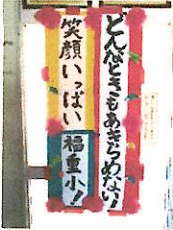 どんなときもあきらめない!
笑顔いっぱい 福重小!